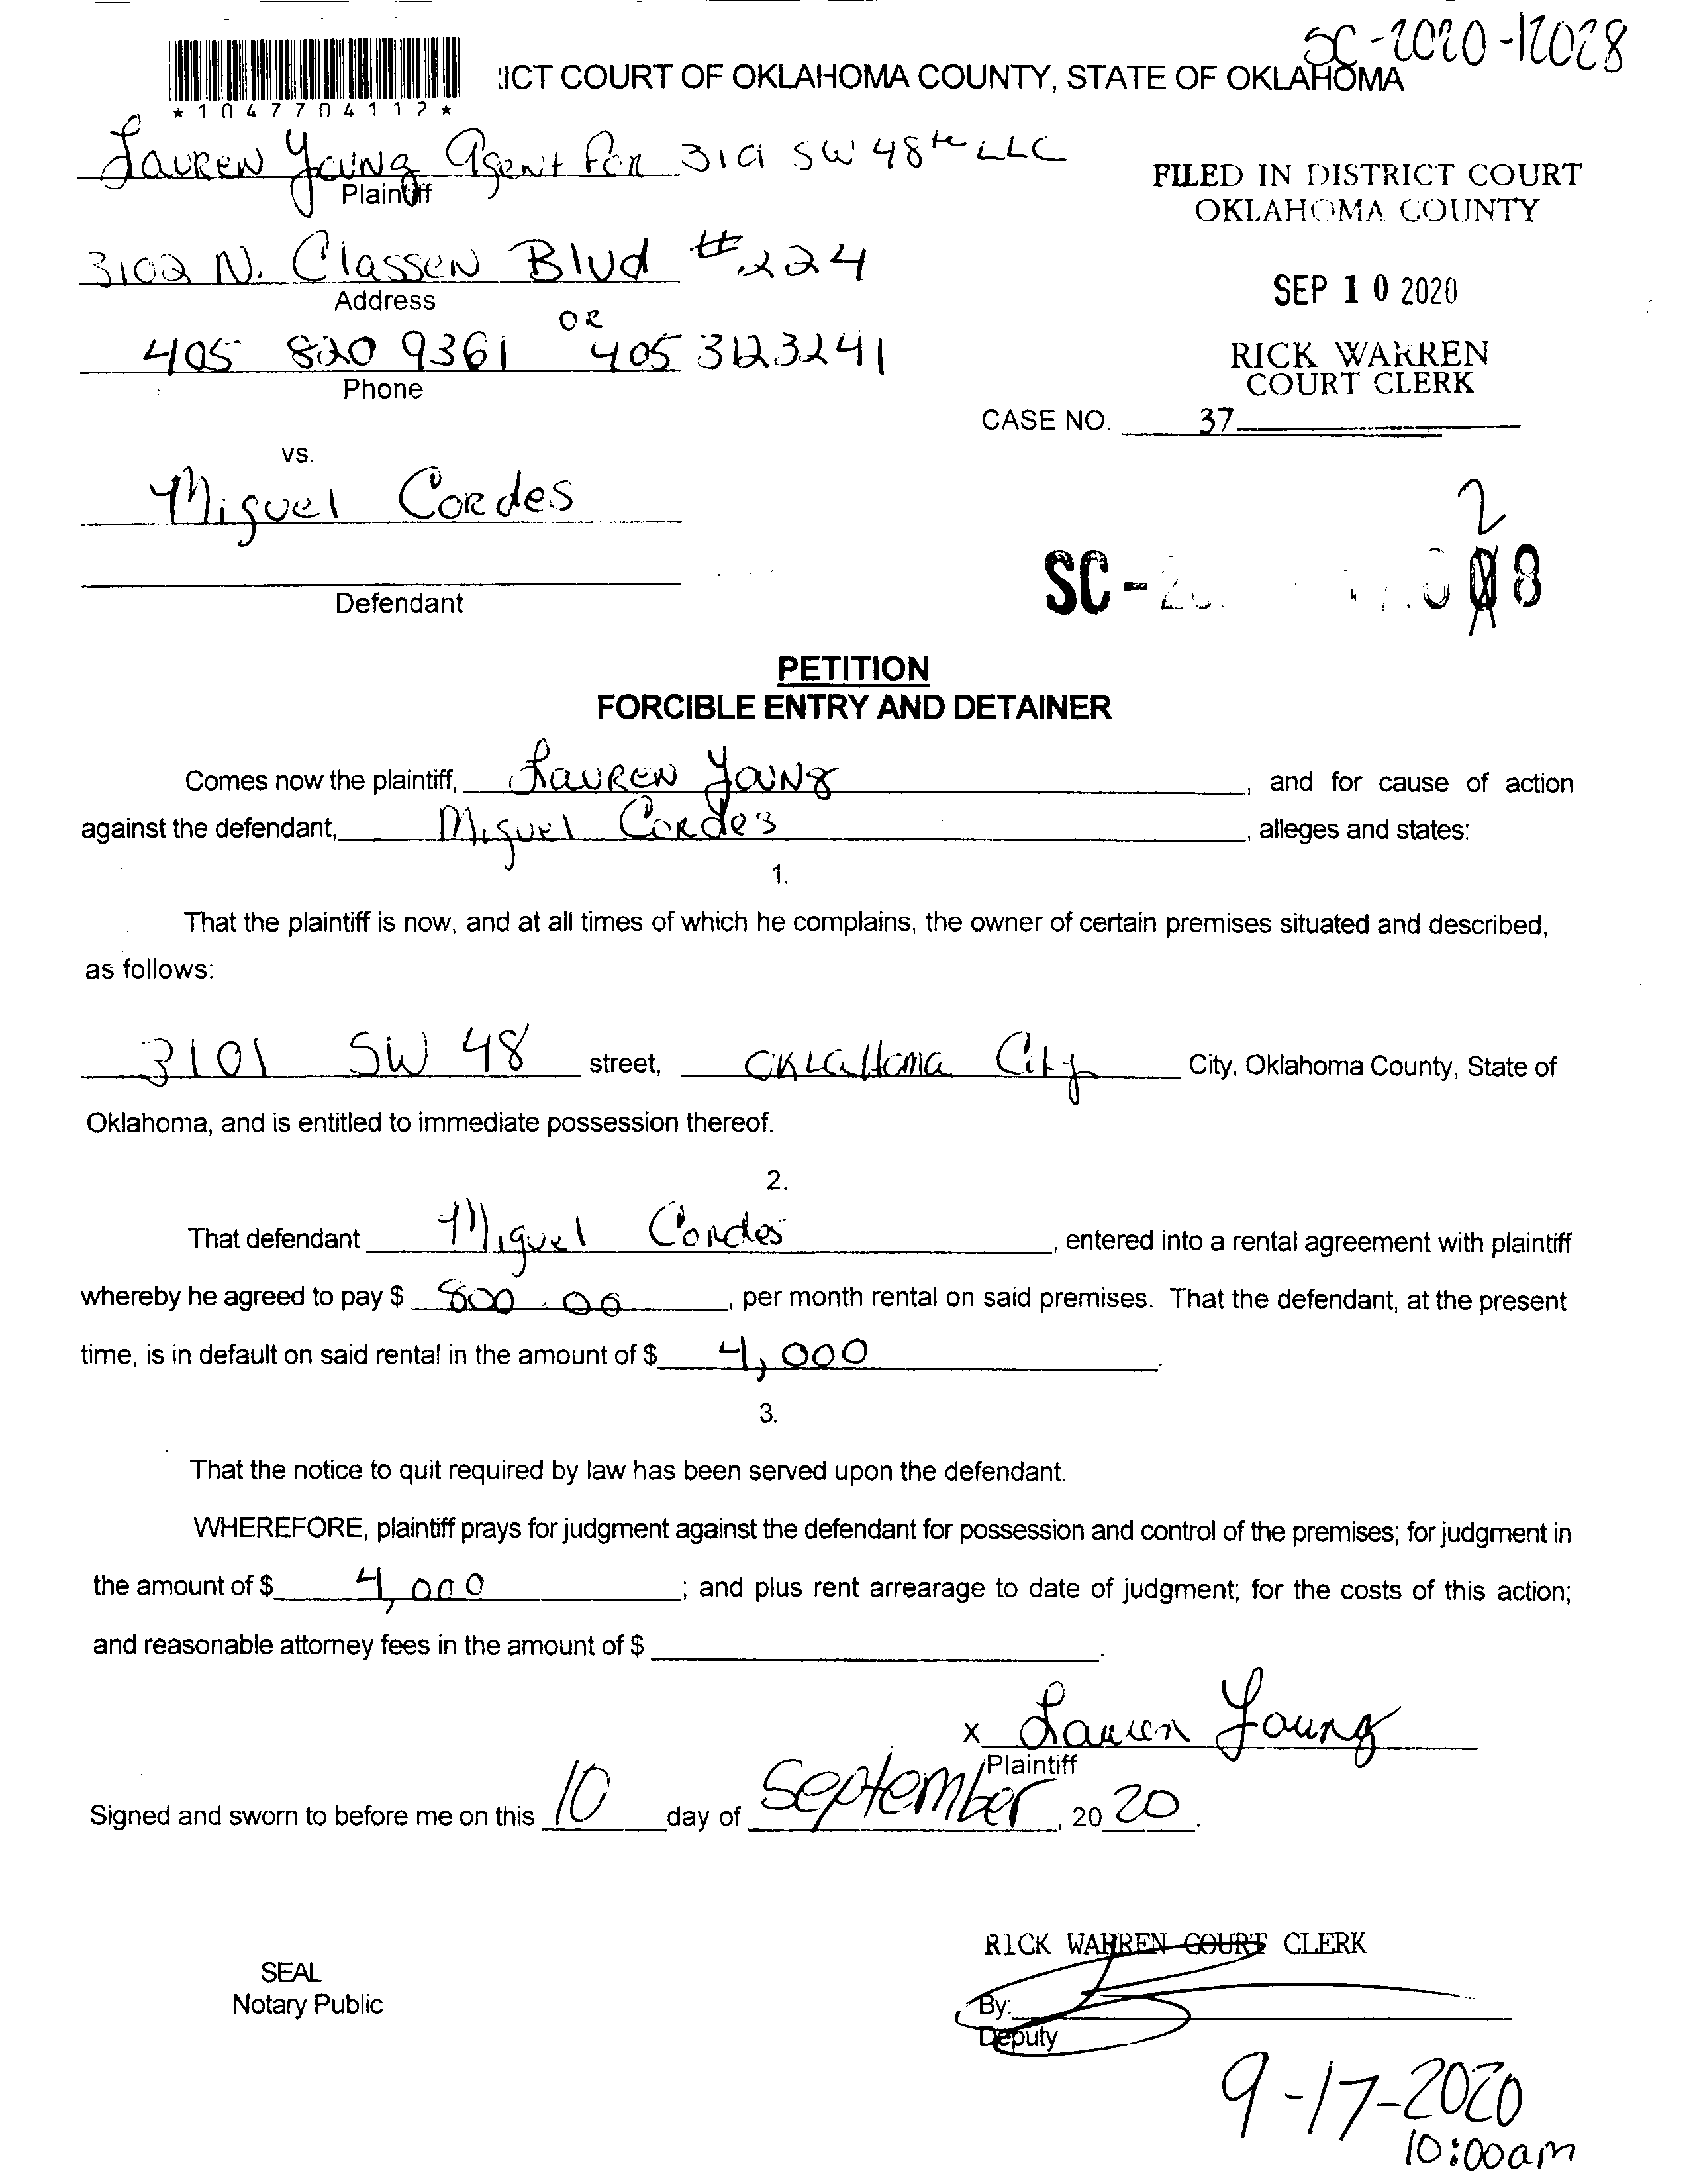 SC-2020-12028
ICT COURT OF OKLAHOMA COUNTY, STATE OF OKLAHOMA
*1047704112*
Lauren Young Agent For 3101 SW 48th LLC
Plaintiff
FILED IN DISTRICT COURT
OKLAHOMA COUNTY
3102 N. Classen Blvd #224
Address
SEP 10 2020
405 820 9361 OR 405 3123241
Phone
RICK WARREN
COURT CLERK
CASE NO. 37
vs.
Miguel Cordes
2
SC-
8
Defendant
PETITION
FORCIBLE ENTRY AND DETAINER
Comes now the plaintiff, Lauren Young, and for cause of action
against the defendant, Miguel Cordes, alleges and states:
1.
That the plaintiff is now, and at all times of which he complains, the owner of certain premises situated and described,
as follows:
3101 SW 48 street, Oklahoma City City, Oklahoma County, State of
Oklahoma, and is entitled to immediate possession thereof.
2.
That defendant Miguel Cordes, entered into a rental agreement with plaintiff
whereby he agreed to pay $ 800.00, per month rental on said premises. That the defendant, at the present
time, is in default on said rental in the amount of $ 4,000.
3.
That the notice to quit required by law has been served upon the defendant.
WHEREFORE, plaintiff prays for judgment against the defendant for possession and control of the premises; for judgment in
the amount of $ 4,000; and plus rent arrearage to date of judgment; for the costs of this action;
and reasonable attorney fees in the amount of $ .
x Lauren Young
Plaintiff
Signed and sworn to before me on this 10 day of September, 2020.
RICK WARREN COURT CLERK
SEAL
Notary Public
By:
Deputy
9-17-2020
10:00am